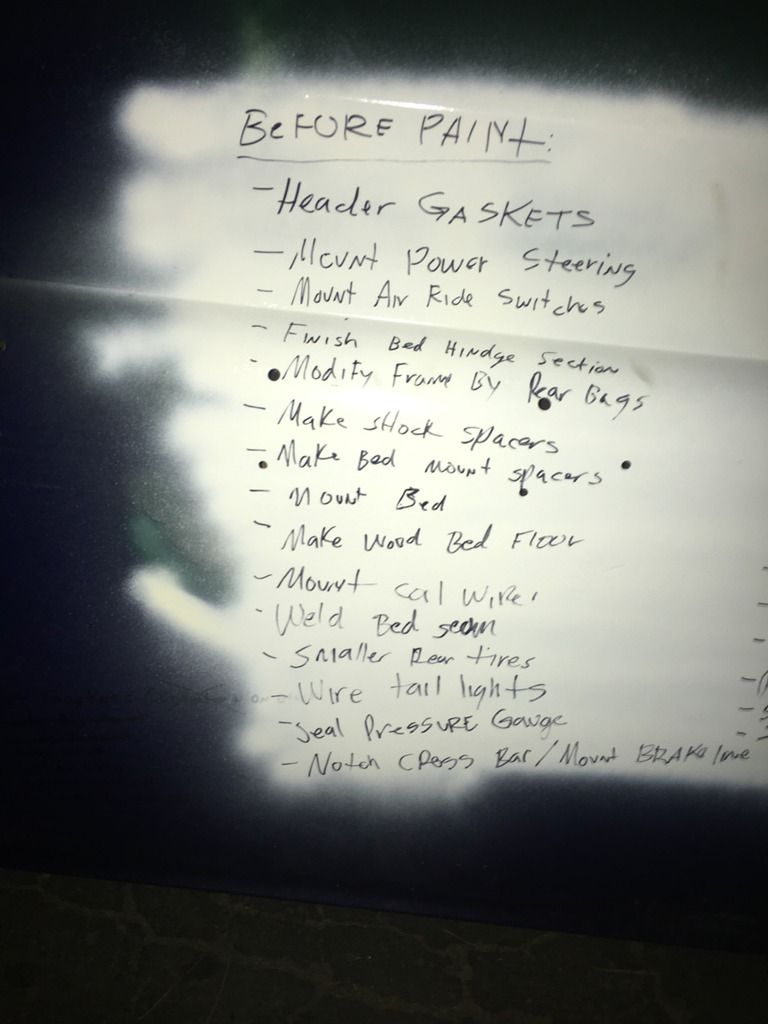 BeFORE PAINt:
- Header GASKETS
- Mount Power Steering
- Mount Air Ride Switches
- Finish Bed Hindge Section
- Modify Frame By Rear Bags
- Make sHock spacers
- Make Bed mount spacers
- Mount Bed
- Make Wood Bed Floor
- Mount
- Weld Bed seam
- Smaller Rear tires
- Wire tail lights
- Seal PRESSURE Gauge
- Notch CRoss Bar / Mount BRAKe line